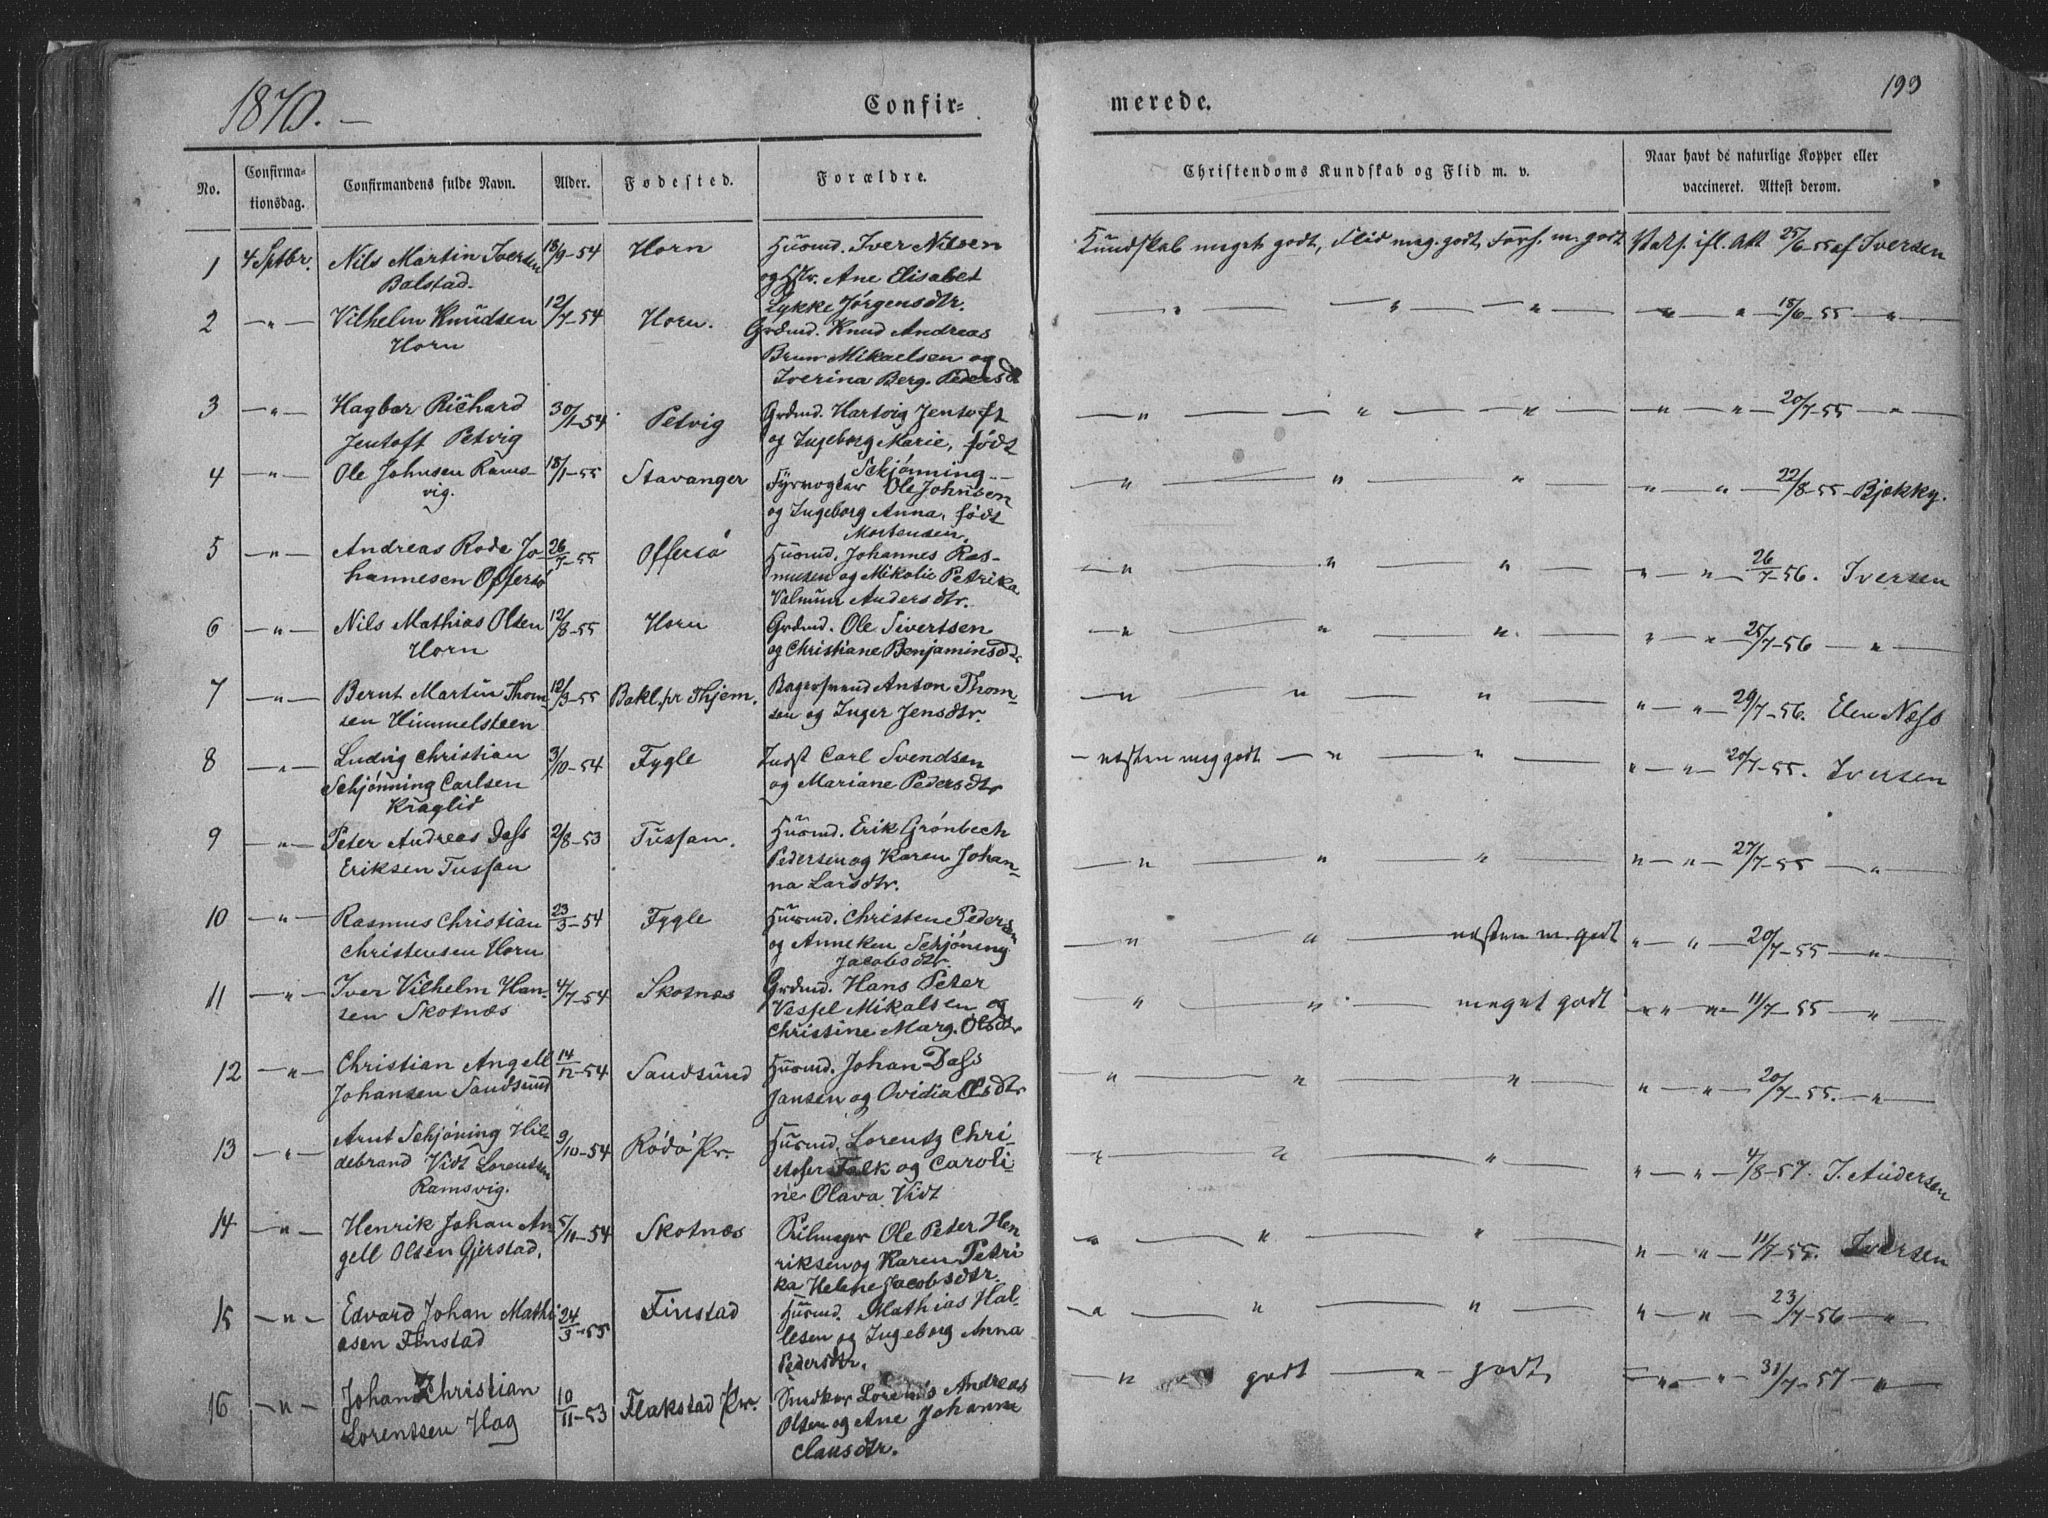 1870. —
Confir=
merede.
199
No.
Confirma=
tionsdag.
Confirmandens fulde Navn.
Alder.
Fødested.
Forældre.
Christendoms Kundskab og Flid m. v.
Naar havt de naturlige Kopper eller
vaccineret. Attest derom.
1 4 Sptbr. Nils Martin Iversen 18/9-54 Horn Husmd. Iver Nilsen Kundskab meget godt, Flid meg. godt, Forh. m. godt Vaks. ifl. Att 25/6-55 af Iversen
Bolstad. og Hstr. Ane Elisabet
Lykke Jørgensdtr.
2 —"— Vilhelm Knudsen 12/7-54 Horn. Grdmd. Knud Andreas " — " — " — " — " — " 18/6-55 — "
Horn Brun Mikaelsen og
Iverina Berg. Pedersd
3 —"— Hagbar Richard 30/1-54 Petvig Grdmd. Hartvig Jentoft — " — " — " — " — " — 20/7-55 — "
Jentoft Petvig og Ingeborg Marie, født
Schjønning
4 —"— Ole Johnsen Rams- 18/1-55 Stavanger Fyrvogter Ole Johnsen " — " — " — " — " — 22/8-55 — Bjekky.
vig. og Ingeborg Anna, født
Mortensen.
5 —"— Andreas Rode Jo- 26/7-55 Offersø Husmd. Johannes Ras- — " — " — " — " — " 26/7-56. Iversen
hannesen Offersø musen og Mikolie Petrika
Valnum Andersdtr.
6 —"— Nils Mathias Olsen 12/8-55 Horn Grdmd. Ole Sivertsen — " — " — " — " — " 25/7-56 — "
Horn og Christiane Benjaminsdtr
7 —"— Bernt Martin Thom- 12/3-55 Bakl. pr Thjem. Anton Thom- — " — " — " — " — " — 29/7-56. Elen Næss
sen Himmelsteen sen og Inger Jensdtr.
8 —"— Ludvig Christian 3/10-54 Fygle Indst Carl Svendsen — næsten meg godt — " — " — " — " — 20/7-55. Iversen
Schjønning Carlsen og Mariane Pedersdtr
Kraglid
9 —"— Peter Andreas Dass 2/8-53 Tussan. Husmd. Erik Grønbech — " — " — " — " — " — 27/7-55 — "
Eriksen Tussan Pedersen og Karen Johan-
na Larsdtr.
10 —"— Rasmus Christian 23/3-54 Fygle Husmd. Christen Pedersen — " — " — næsten m. godt " — " — 20/7-55 — "
Christensen Horn og Anneken Schjøning
Jacobsdtr.
11 —"— Iver Vilhelm Han- 4/7-54 Skotnæs Grdmd. Hans Peter " — " — meget godt " — " — 11/7-55 — "
sen Skotnæs Vessel Mikalsen og
Christine Marg. Olsdtr
12 —"— Christian Angell 14/12-54 Sandsund Husmd. Johan Dass " — " — " — " — " — 20/7-55. — "
Johansen Sandsund Jansen og Ovidia Olsdtr
13 —"— Arnt Schjøning Hil- 9/10-54 Rødø Pr. Husmd. Lorentz Chri- " — " — " — " — " — 4/8-57. I. Andersen
debrand Vidt Lorentsen stofer Falk og Caroli-
Ramsvig. ne Olava Vidt
14 —"— Henrik Johan An- 5/11-54 Skotnæs Ole Peter Hen " — " — " — " — " — 11/7-55. Iversen
gell Olsen Gjerstad. riksen og Karen Petri
ka Helene Jacobsdtr.
15 —"— Edvard Johan Mathi 24/3-55 Finstad Husmd. Mathias Hal- " — " — " — " — " — 23/7-56 — "
asen Finstad lesen og Ingeborg Anna
Pedersdtr.
16 —"— Johan Christian 10/11-53 Flakstad Pr. Andreas — " — godt — " — godt. — " — " — 31/7-57 — "
Lorentsen Hag Olsen og Ane Johanne
Clausdtr.